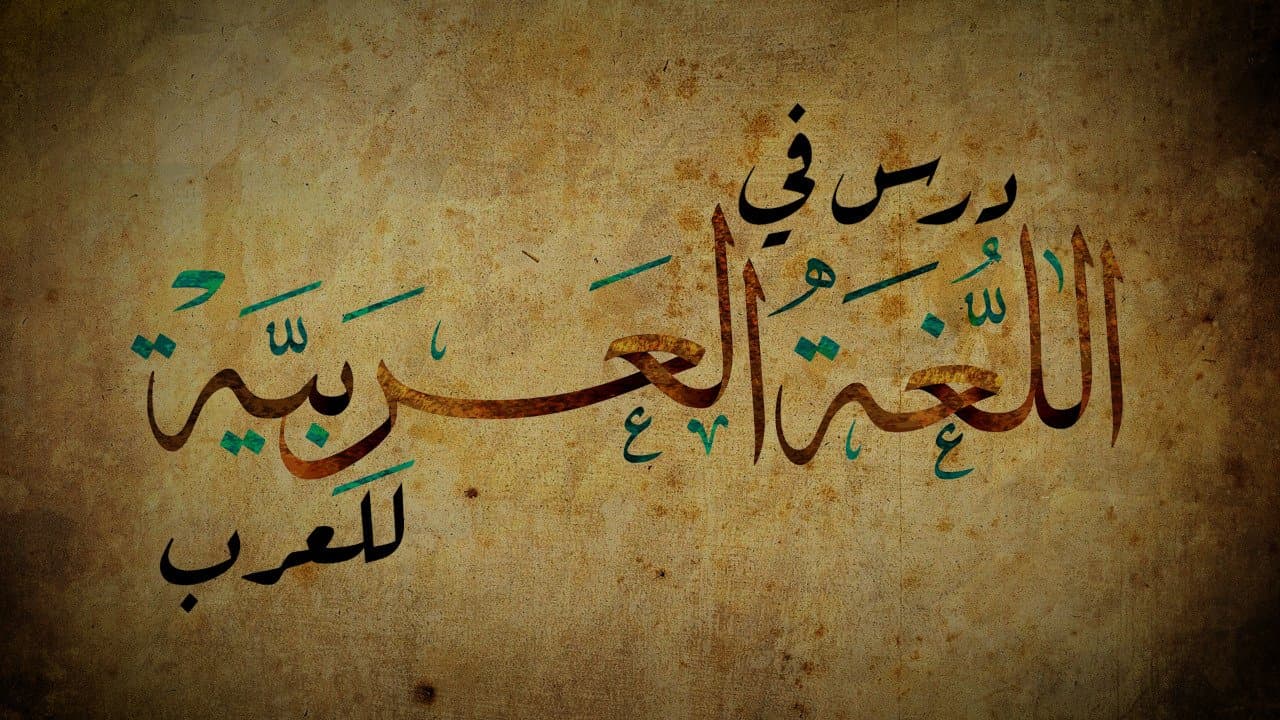 درس في
اللُّغَةُ العَرَبِيَّةُ
للعرب